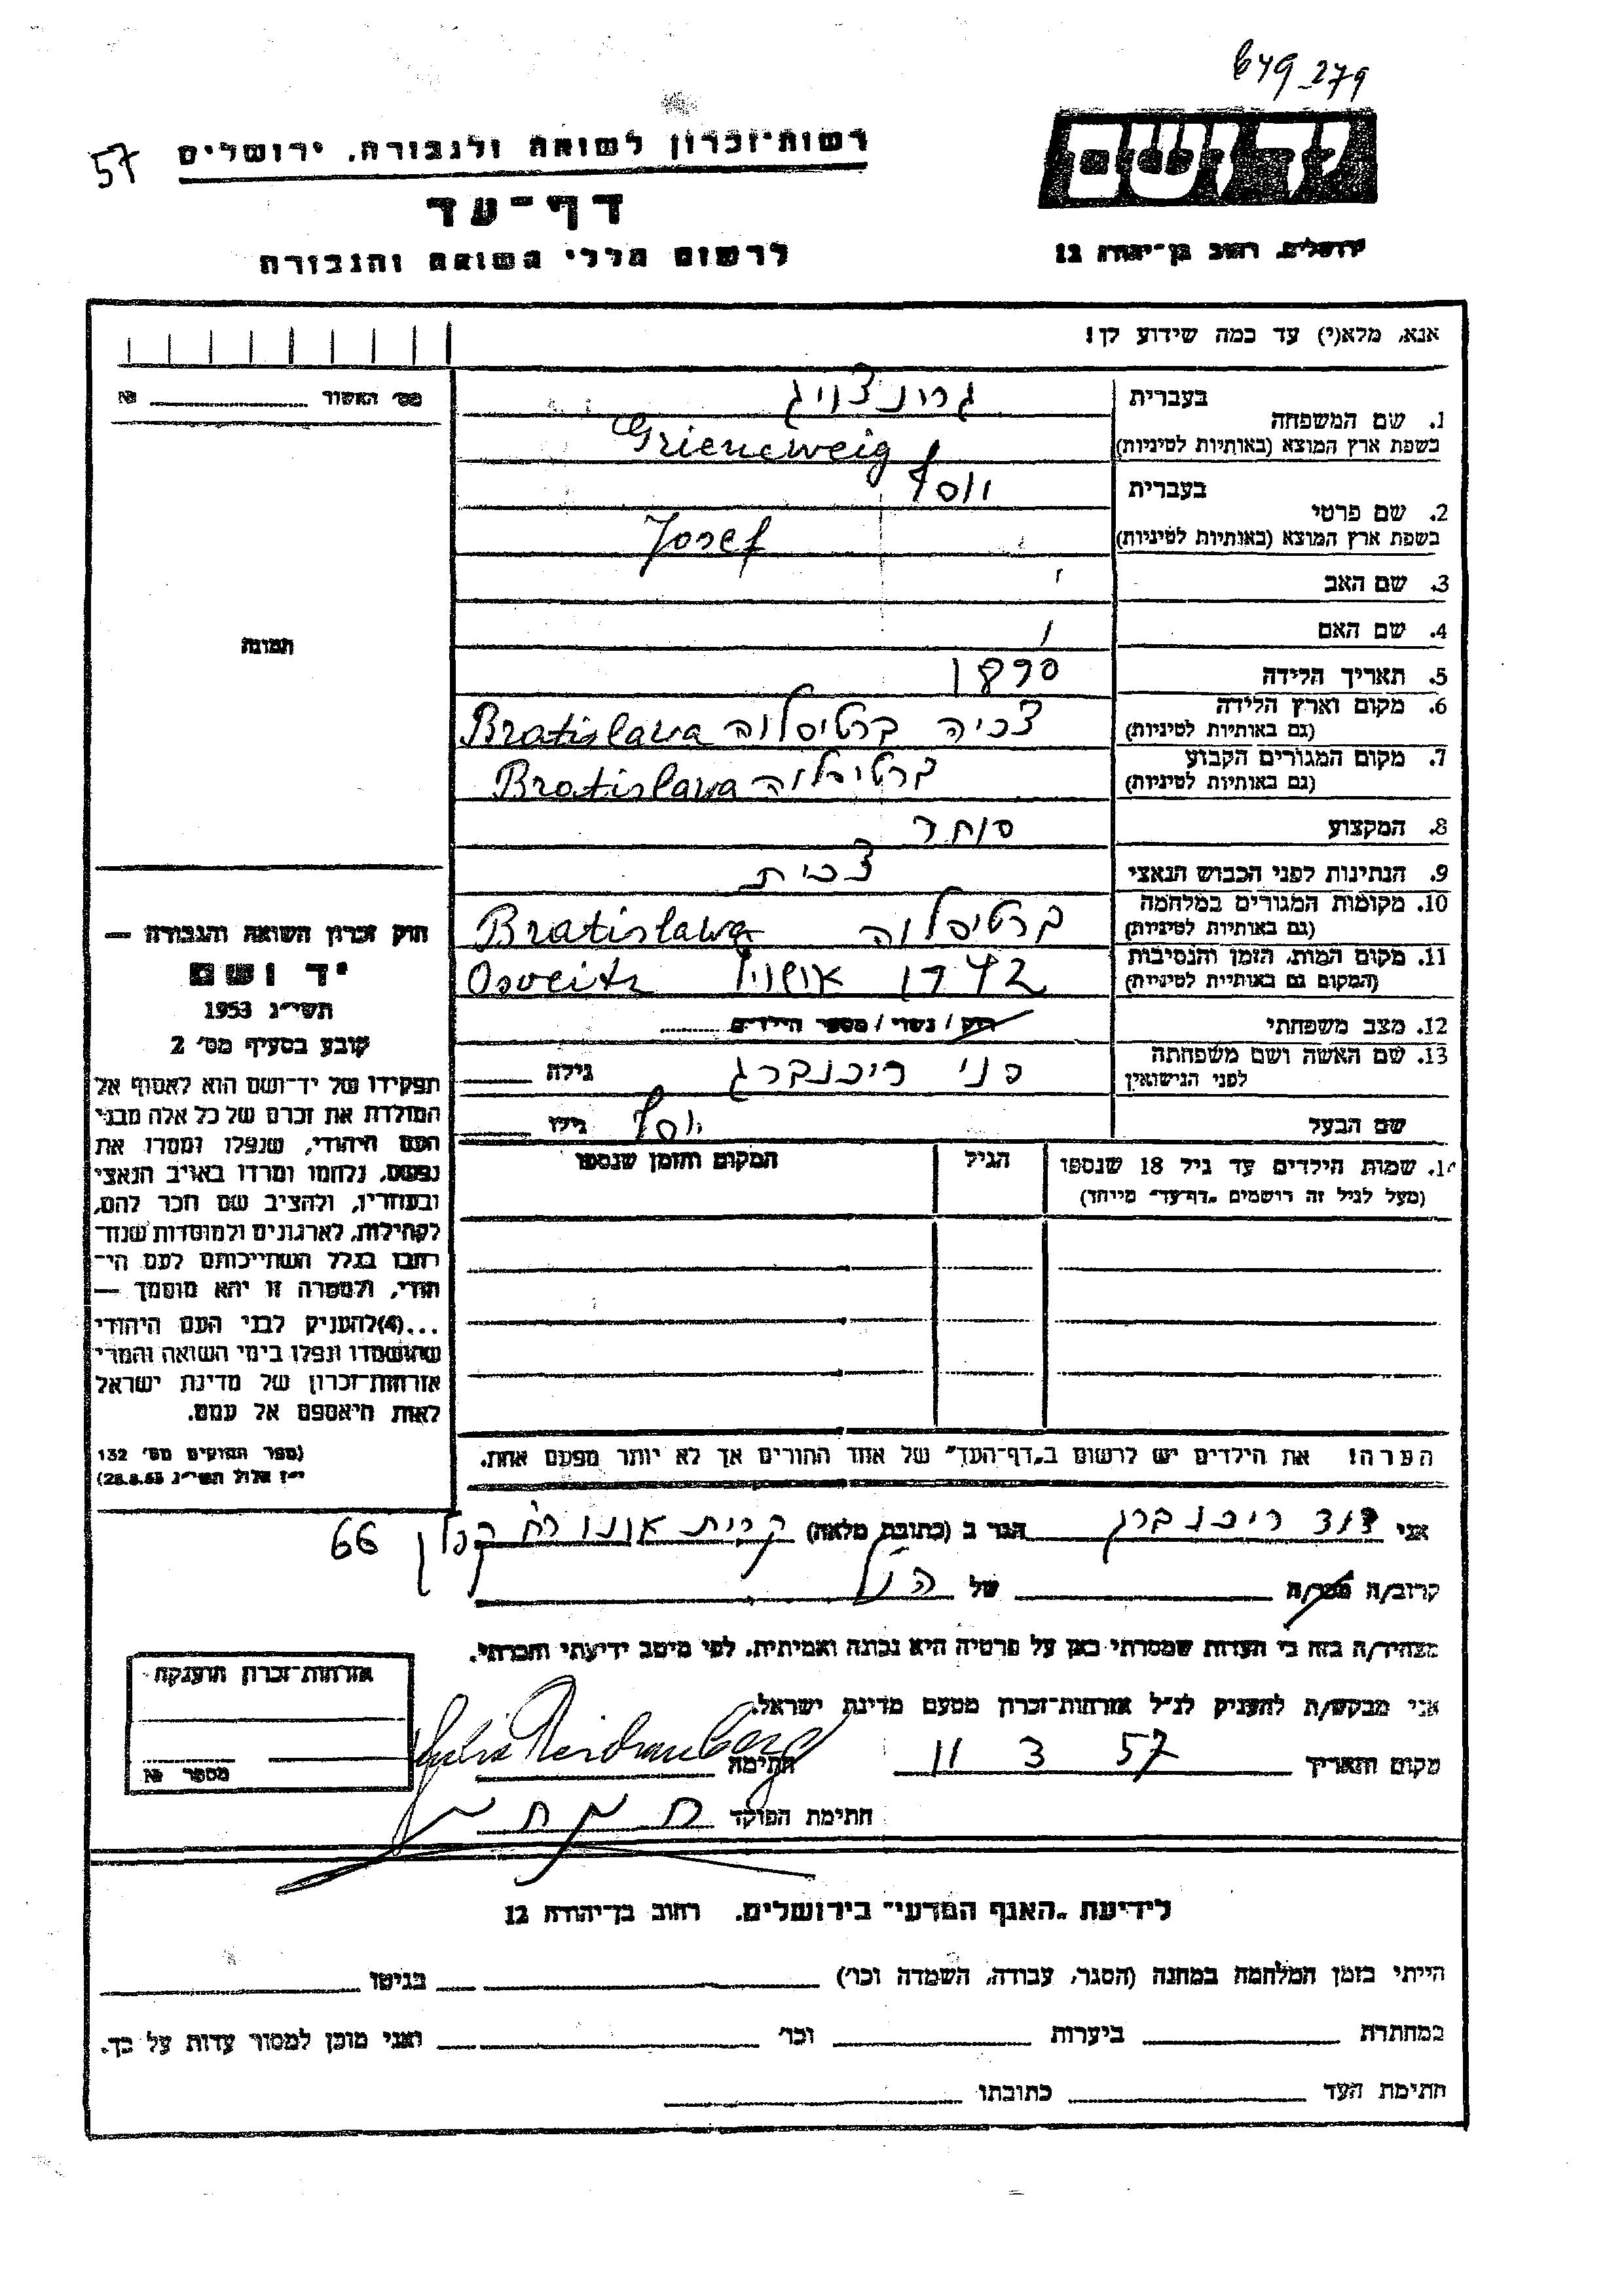 679_279
יד ושם
ירושלים, רחוב בן־יהודה 12
57
רשות־זכרון לשואה ולגבורה, ירושלים
דף־עד
לרשום חללי השואה והגבורה
אנא, מלא(י) עד כמה שידוע לך!
מס׳ האשור № ______
1. שם המשפחה
בעברית גרונצוויג
בשפת ארץ המוצא (באותיות לטיניות) Grieneweig
2. שם פרטי
בעברית יוסף
בשפת ארץ המוצא (באותיות לטיניות) Josef
3. שם האב
4. שם האם
תמונה
5. תאריך הלידה
6. מקום וארץ הלידה צכיה ברטיסלוה Bratislawa
(גם באותיות לטיניות)
7. מקום המגורים הקבוע ברטיסלוה Bratislawa
(גם באותיות לטיניות)
8. המקצוע סוחר
9. הנתינות לפני הכבוש הנאצי צכית
10. מקומות המגורים במלחמה ברטיסלוה Bratislawa
(גם באותיות לטיניות)
11. מקום המות, הזמן והנסיבות 1942 אושויץ Osveitz
(המקום גם באותיות לטיניות)
12. מצב משפחתי רוק / נשוי / מספר הילדים
13. שם האשה ושם משפחתה פני רייכנברג גילה
לפני הנישואין
שם הבעל יוסף גילו
14. שמות הילדים עד גיל 18 שנספו הגיל המקום והזמן שנספו
(מעל לגיל זה רושמים „דף־עד״ מיוחד)
הערה! את הילדים יש לרשום ב„דף־העד״ של אחד ההורים אך לא יותר מפעם אחת.
חוק זכרון השואה והגבורה —
יד ושם
תשי״ג 1953
קובע בסעיף מס׳ 2
תפקידו של יד־ושם הוא לאסוף אל
המולדת את זכרם של כל אלה מבני
העם היהודי, שנפלו ומסרו את
נפשם, נלחמו ומרדו באויב הנאצי
ובעוזריו, ולהציב שם וזכר להם,
לקהילות, לארגונים ולמוסדות שנח־
רבו בגלל השתייכותם לעם הי־
הודי, ולמטרה זו יהא מוסמך —
...(4)להעניק לבני העם היהודי
שהושמדו ונפלו בימי השואה והמרי
אזרחות־זכרון של מדינת ישראל
לאות היאספם אל עמם.
(ספר החוקים מס׳ 132
י״ז אלול תשי״ג 28.8.53)
אני דוד רייכנברג הגר ב (כתובת מלאה) קרית אונו רח קפלן 66
קרוב/ה מכר/ה של הנ״ל
מצהיר/ה בזה כי העדות שמסרתי כאן על פרטיה היא נכונה ואמיתית, לפי מיטב ידיעתי והכרתי.
אני מבקש/ת להעניק לנ״ל אזרחות־זכרון מטעם מדינת ישראל.
מקום ותאריך 11 3 57 חתימה Reichenberg
חתימת הפוקד
אזרחות־זכרון הוענקה
מספר №
לידיעת „האגף המדעי״ בירושלים, רחוב בן־יהודה 12
הייתי בזמן המלחמה במחנה (הסגר, עבודה, השמדה וכו׳) ______ בגיטו ______
במחתרת ______ ביערות ______ וכו׳ ______ ואני מוכן למסור עדות על כך.
חתימת העד ______ כתובתו ______